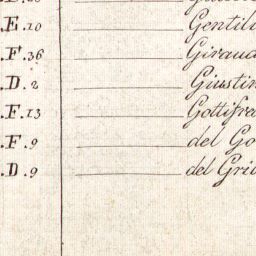 .E.10 Gentili
.F.36 Giraud
.D.2 Giustin
.F.13 Gottifre
.F.9 del Go
.D.9 del Gri